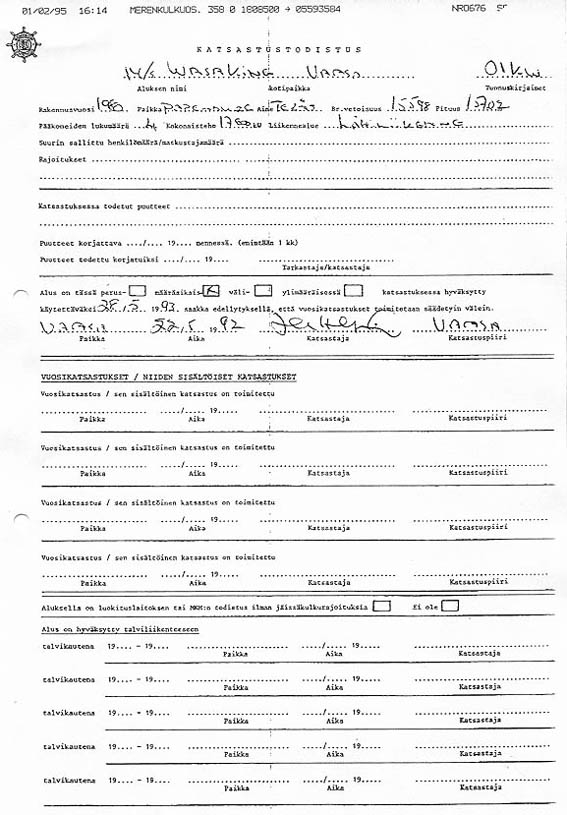 01/02/95 16:14 MERENKULKUOS. 358 0 1808500 → 05593584 NRO676
KATSASTUSTODISTUS
M/S WASA KING VAASA OIKW
Aluksen nimi kotipaikka Tunnuskirjaimet
Rakennusvuosi 1980 Paikka PAPENBURG Aine TERÄS Br.vetoisuus 15598 Pituus 137.02
Pääkoneiden lukumäärä ..4.. Kokonaisteho 17600 KW Liikennealue LÄHILIIKENNE
Suurin sallittu henkilömäärä/matkustajamäärä
Rajoitukset
Katsastuksessa todetut puutteet
Puutteet korjattava ..../.... 19.... mennessä. (enintään 1 kk)
Puutteet todettu korjatuiksi ..../.... 19....
Tarkastaja/katsastaja
Alus on tässä perus- määräaikais- väli- ylimääräisessä katsastuksessa hyväksytty
käytettäväksi 28./5. 1993. saakka edellytyksellä, että vuosikatsastukset toimitetaan säädetyin välein.
VAASA 22.5 1992 VAASA
Paikka Aika Katsastaja Katsastuspiiri
VUOSIKATSASTUKSET / NIIDEN SISÄLTÖISET KATSASTUKSET
Vuosikatsastus / sen sisältöinen katsastus on toimitettu
...../.... 19.....
Paikka Aika Katsastaja Katsastuspiiri
Vuosikatsastus / sen sisältöinen katsastus on toimitettu
...../.... 19.....
Paikka Aika Katsastaja Katsastuspiiri
Vuosikatsastus / sen sisältöinen katsastus on toimitettu
...../.... 19.....
Paikka Aika Katsastaja Katsastuspiiri
Vuosikatsastus / sen sisältöinen katsastus on toimitettu
...../.... 19.....
Paikka Aika Katsastaja Katsastuspiiri
Aluksella on luokituslaitoksen tai MKH:n todistus ilman jäissäkulkurajoituksia Ei ole
Alus on hyväksytty talviliikenteeseen
talvikautena 19.... - 19.... ..../..... 19....
Paikka Aika Katsastaja
talvikautena 19.... - 19.... ..../..... 19....
Paikka Aika Katsastaja
talvikautena 19.... - 19.... ..../..... 19....
Paikka Aika Katsastaja
talvikautena 19.... - 19.... ..../..... 19....
Paikka Aika Katsastaja
talvikautena 19.... - 19.... ..../..... 19....
Paikka Aika Katsastaja